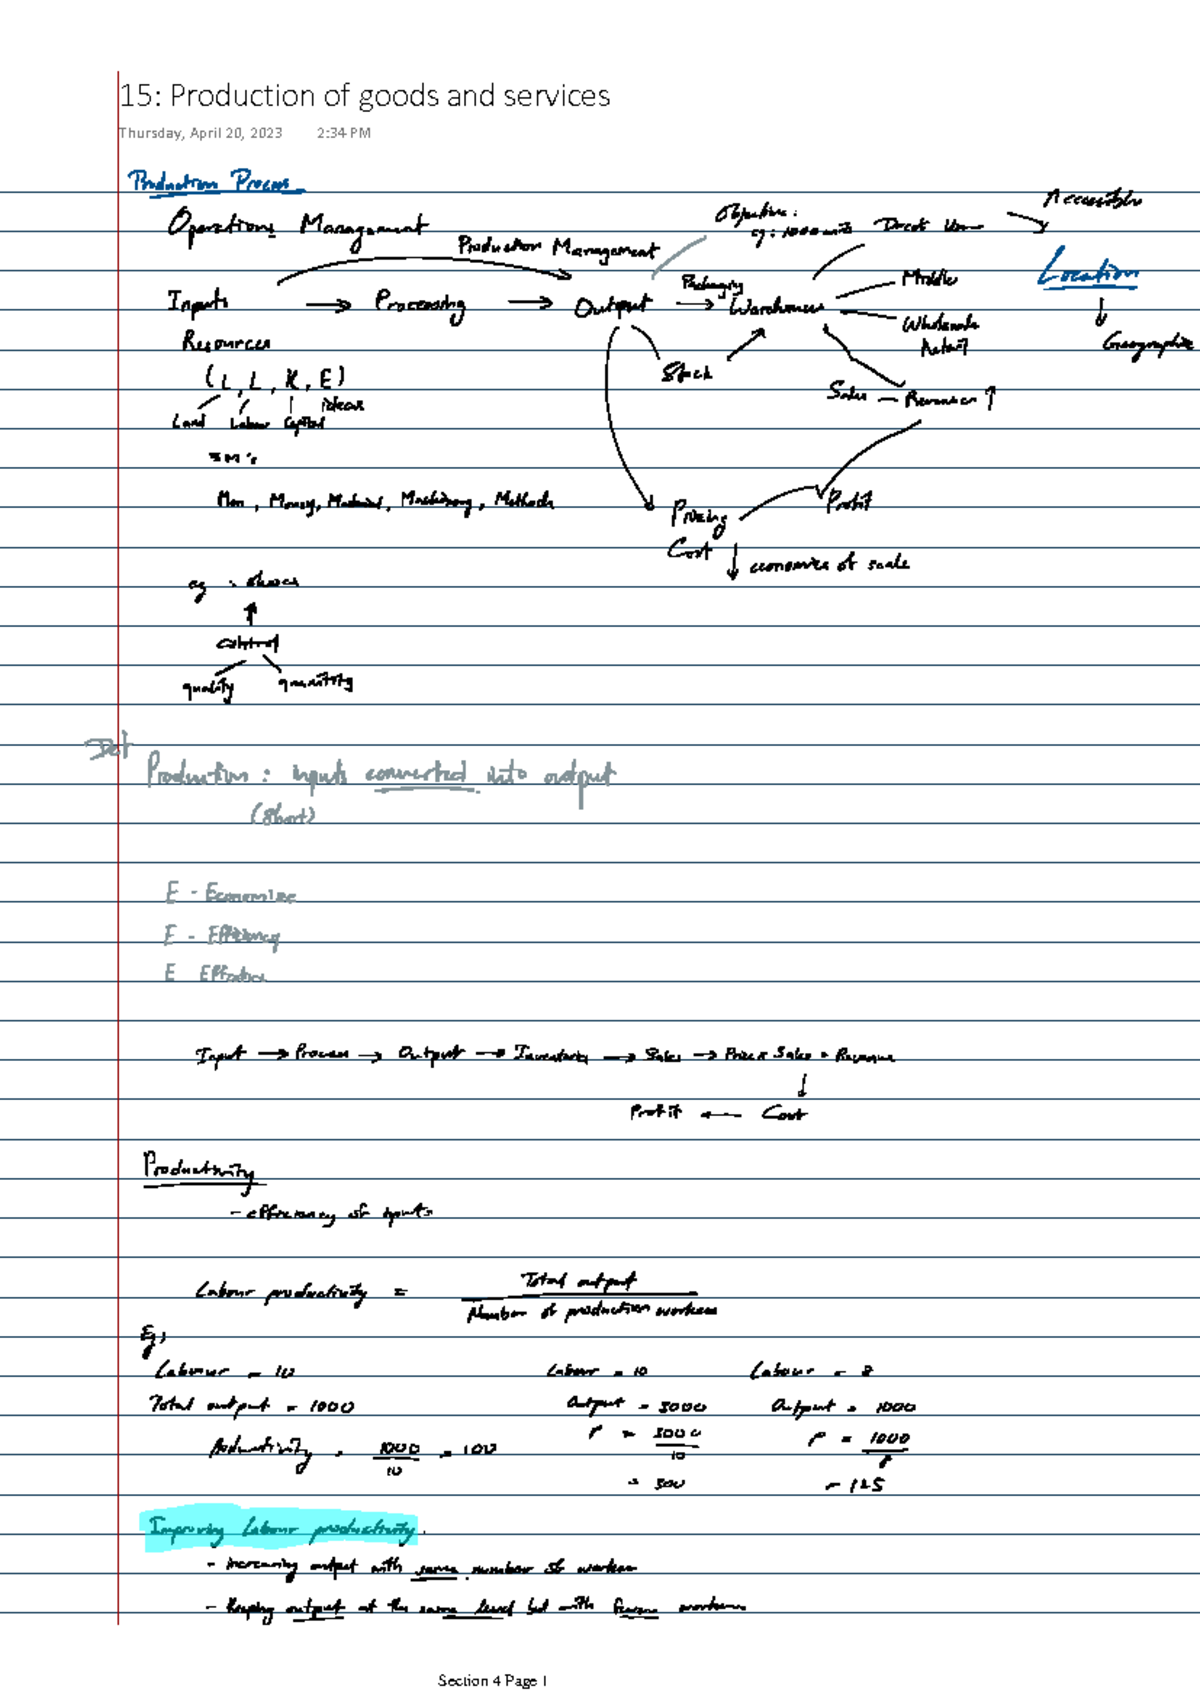 15: Production of goods and services
Thursday, April 20, 2023 2:34 PM
Production Process
Operations Management
Production Management
Objective:
eg: 1000 units
Direct User
Accessible
Location
Geographic
Inputs → Processing → Output → Packaging Warehouses
Middle
Wholesale
Retail
Resources
Stock
(L, L, K, E)
ideas
Land Labour Capital
Sales — Revenue ↑
5M's
Men, Money, Material, Machinery, Methods
Pricing
Profit
Cost ↓ economies of scale
eg : shoes
↑
control
quality quantity
Def
Production : inputs converted into output
(short)
E - Economize
E - Efficiency
E Effective
Input → Process → Output → Inventories → Sales → Price x Sales = Revenue
↓
Profit ← Cost
Productivity
- efficiency of inputs
Labour productivity = Total output
Number of production workers
Eg,
Labour = 10 Labour = 10 Labour = 8
Total output = 1000 Output = 3000 Output = 1000
Productivity = 1000/10 = 100 P = 3000/10 P = 1000/8
= 300 = 125
Improving Labour productivity.
- increasing output with same number of workers
- Keeping output at the same level but with fewer workers
Section 4 Page 1